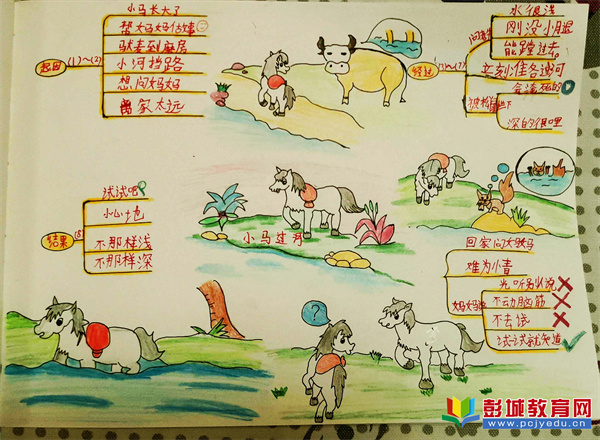 小马长大了
帮妈妈做事
驮麦到磨房
小河挡路
想问妈妈
离家太远
起因
(1)~(2)
经过
水很浅
刚没小腿
能蹚过去
立刻准备过河
会淹死的
深的很哩
试试吧
小心地
不那样浅
不那样深
结果
小马过河
回家问妈妈
难为情
妈妈说
光听别人说
不动脑筋
不去试
试试就知道
?
彭城教育网
www.pcjyedu.cn